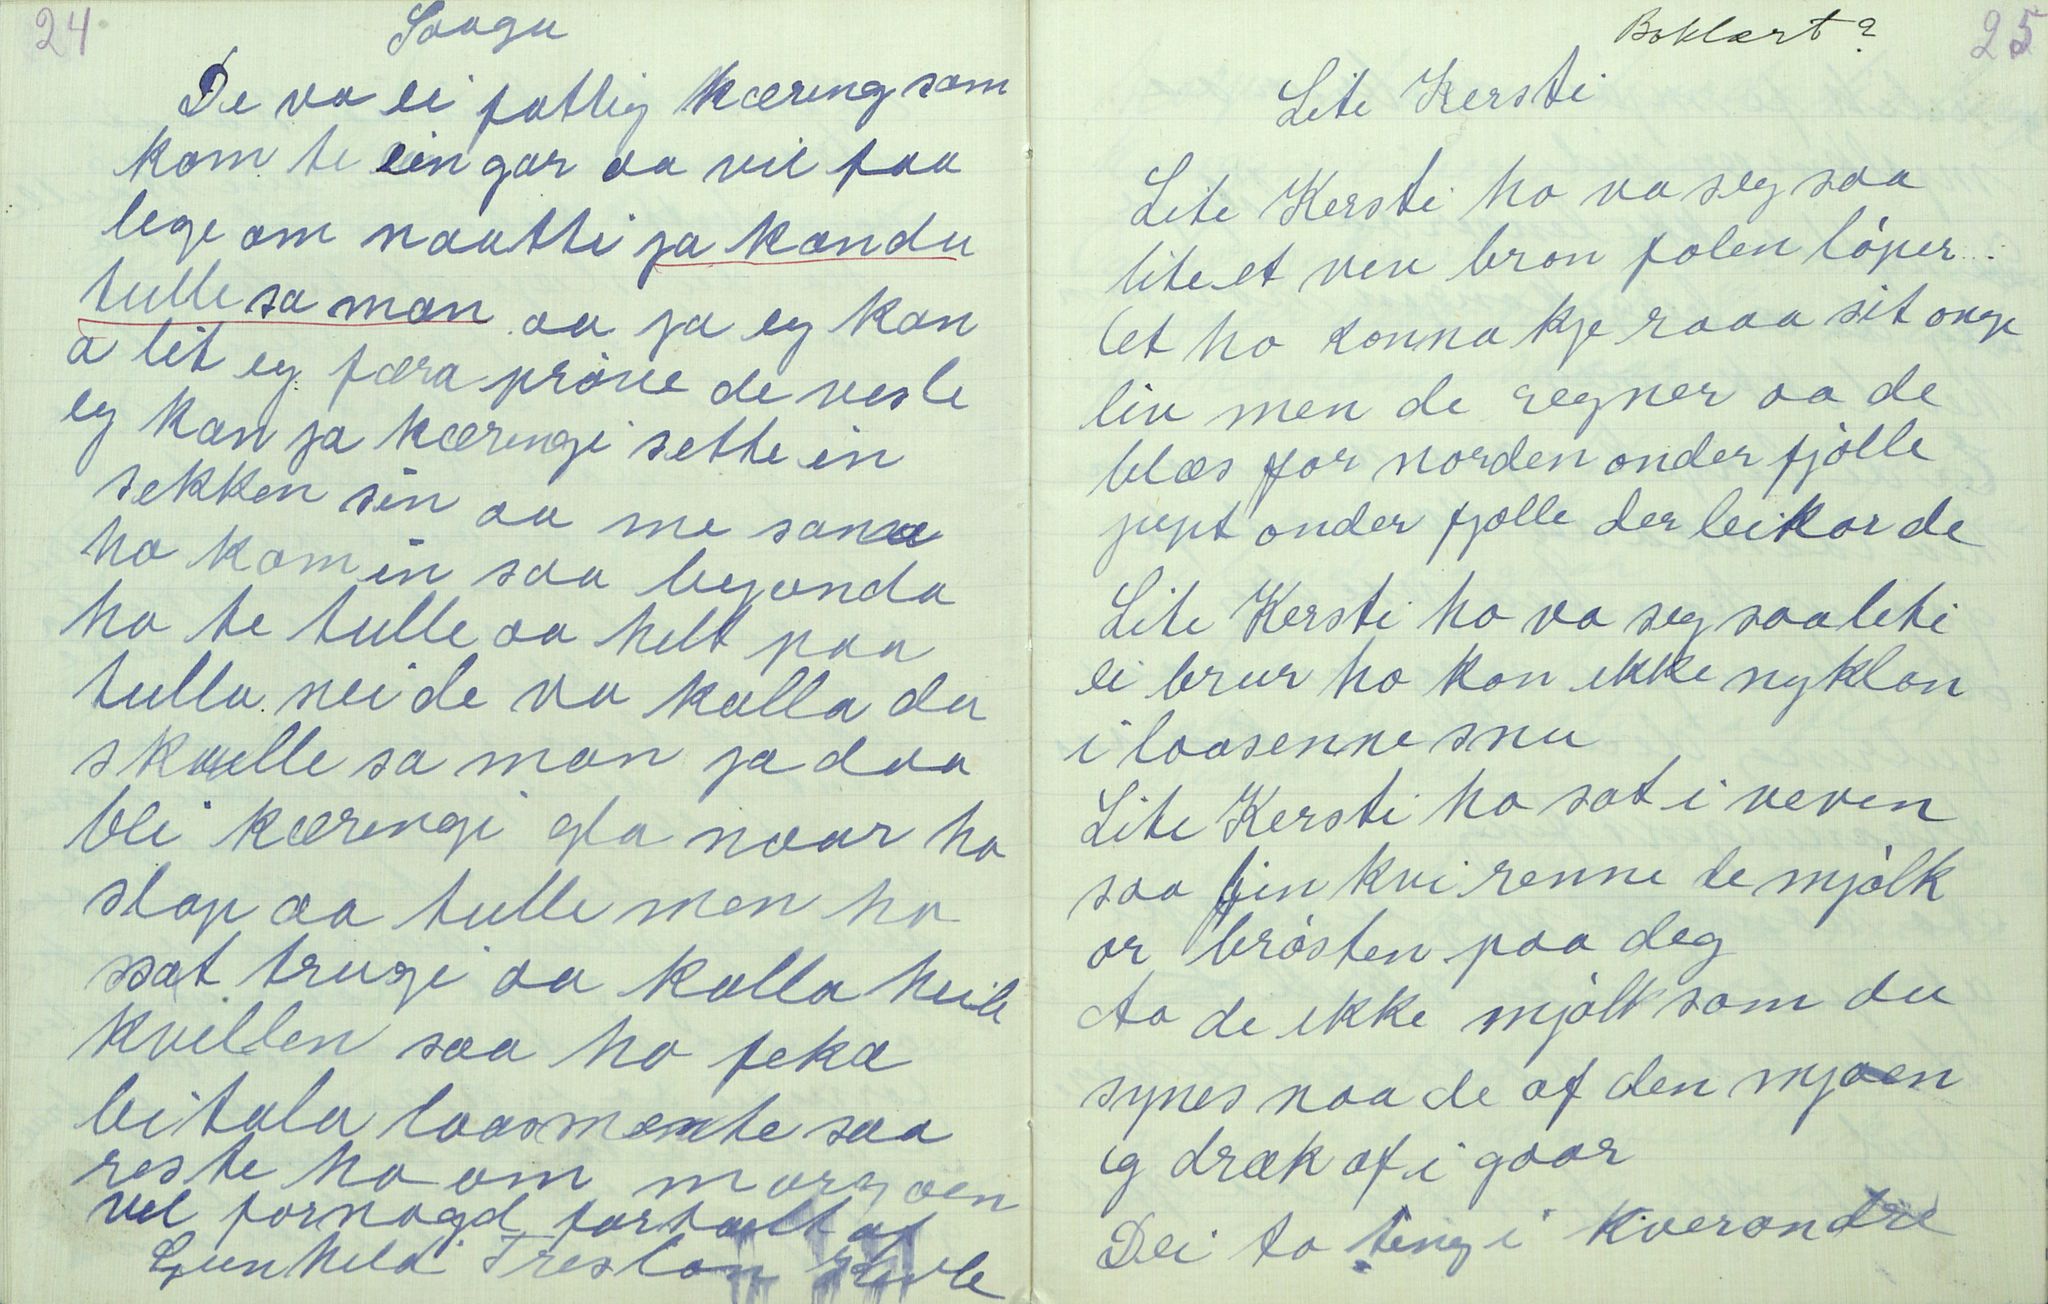 24
Soogu
De va ei fattig kæring som
kom te ein gar aa vil faa
lege om naatti ja kandu
tulle sa man aa ja eg kan
a lit eg færa prøve de vesle
eg kan ja kæringi sette in
sekken sin aa me sama
ho kom in saa bejonda
ho te tulle aa helt paa
tulla nei de va kalla du
skulle sa man ja daa
blei kæringi gla naar ho
slap aa tulle men ho
sat trugi aa kalla heile
kvellen saa ho feka
bitala laasmente saa
reste ho om morgoen
vel fornøgd fortalt af
Gunhild Treslan
25
Boklært?
Lite Kersti
Lite Kersti ho va seg saa
lite et ven bron folen løper
let ho konna kje raaa sit onge
liv men de regner aa de
blæs for norden onder fjølle
jupt onder fjølle der leikar de
Lite Kersti ho va seg saa liti
ei brur ho kan ikke nyklan
i laasenne snu
Lite Kersti ho sat i veven
saa fin kvi renne de mjølk
or brøsten paa deg
Aa de ikke mjølk som du
synes naa de af den mjøen
eg dræk af i gaar
Dei to ting i kverandre